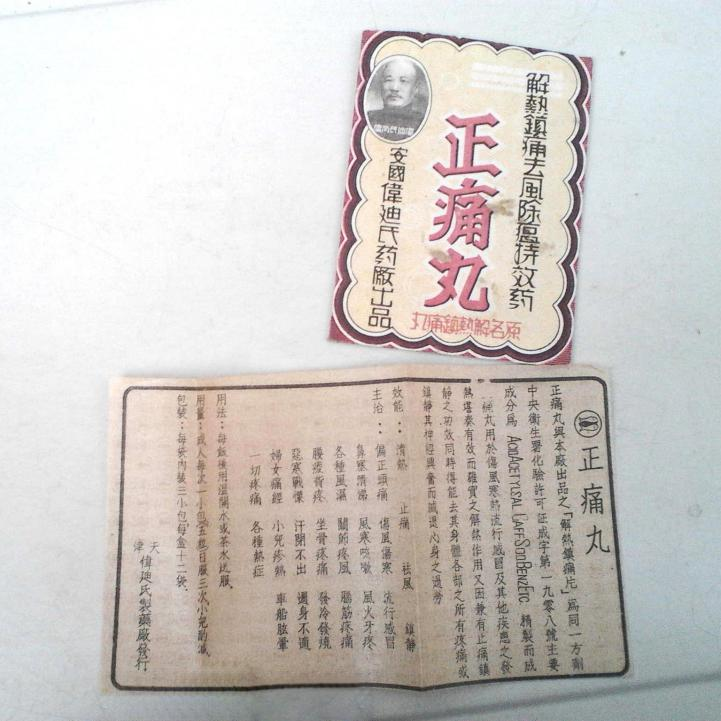 解熱鎮痛去風除瘟特效药
正痛丸
安國偉迪氏药廠出品
原名解熱鎮痛丸
正痛丸
正痛丸與本廠出品之「解熱鎮痛片」為同一方劑
中央衛生署化驗許可証成字第一九零八號主要
成分爲 ACID ACETYLSAL CAFF SOD BENZ ETC 精製而成
痛丸用於傷風寒熱流行感冒及其他疾患之發
熱堪奏有效而確實之解熱作用又因兼有止痛鎮
靜之功效同時得能去其身體各部之所有疼痛或
鎮靜其神經興奮而減退心身之過勞
效能：清熱 止痛 祛風 鎮静
主治：偏正頭痛 傷風傷寒 流行感冒
鼻塞清涕 風寒咳嗽 風火牙疼
各種風濕 關節疼風 腦筋疼痛
腰痠背疼 坐骨疼痛 發冷發燒
惡寒戰慄 汗閉不出 週身不適
婦女痛經 小兒疹熱 車船眩暈
一切疼痛 各種熱症
用法：每飯後用溫開水或茶水送服
用量：成人每次一小包(五粒)日服三次小兒酌減
包裝：每袋內裝三小包每盒十二袋
天津偉迪氏製藥廠發行